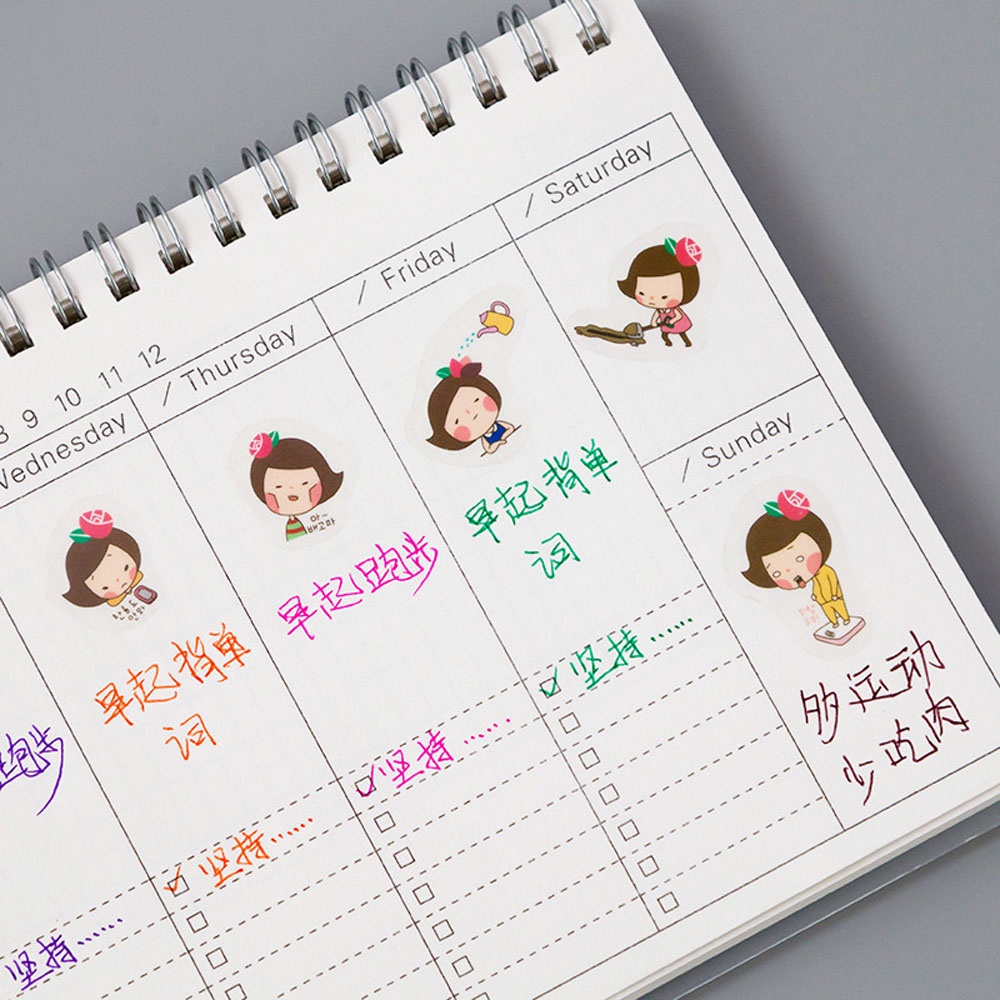 8 9 10 11 12
Wednesday
/ Thursday
/ Friday
/ Saturday
/ Sunday
跑步
坚持……
早起背单
词
坚持……
아~
배고파
早起跑步
坚持……
早起背单
词
坚持……
多运动
少吃肉